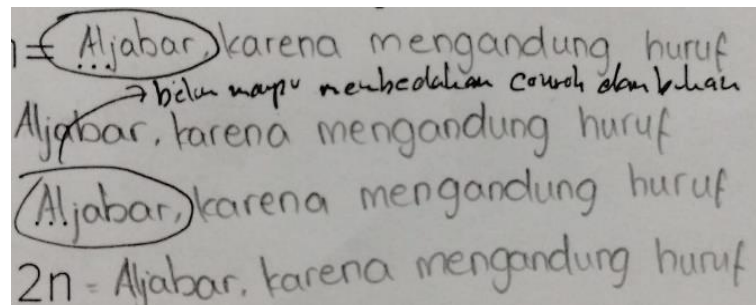 = Aljabar, karena mengandung huruf
belum mampu membedakan contoh dan bukan
Aljabar, karena mengandung huruf
Aljabar, karena mengandung huruf
2n = Aljabar, karena mengandung huruf